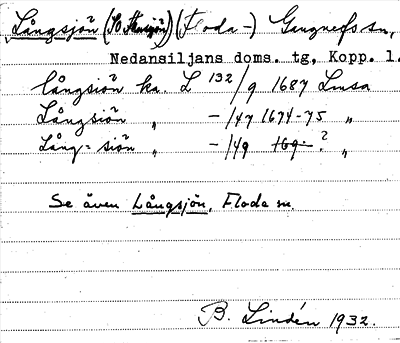 Långsjön (St. Långsjön) (Floda -) Gagnefs sn,
Nedansiljans doms. tg, Kopp. l.
långsiön ka. L 132/9 1687 Lmsa
Långsiön " -/47 1674-75 "
Lång=siön " -/49 169-? "
Se även Långsjön, Floda sn.
B. Lindén 1932.